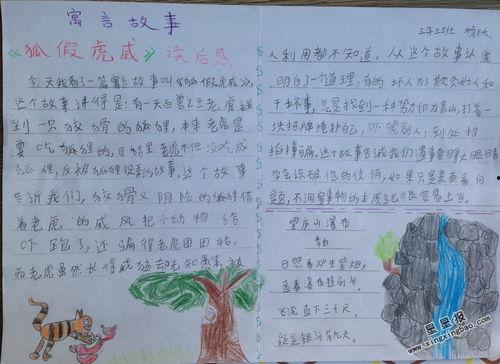 寓言故事
《狐假虎威》读后感
今天我看了一篇寓言故事叫《狐假虎威》,
这个故事讲得是:有一天百兽之王老虎碰
到一只狡猾的狐狸,本来老虎是
要吃狐狸的,可结果老虎不但没吃成
狐狸,反被狐狸
这个故事
告诉我们,狡猾又阴险的狐狸借
着老虎的威风把小动物给
吓跑了,还骗得老虎团团转。
而老虎虽然长得威猛却
被
三年三班
人利用都不知道,从这个故事让我
明白了一个道理,有的坏人为了欺负好人和
干坏事,总是找到一种势力做靠山,打着一
块招牌维护自己,吓唬别人,到处招
拍撞骗。这个故事告诉我们遇事要睁大眼睛
学会识破他的伎俩,如果只是表面看问
题,不调查事物的本质就很容易上当。
望庐山瀑布
李白
日照香炉生紫烟,
遥看瀑布挂前川。
飞流直下三千尺,
疑是银河落九天。
星星报
www.xingxingbao.com